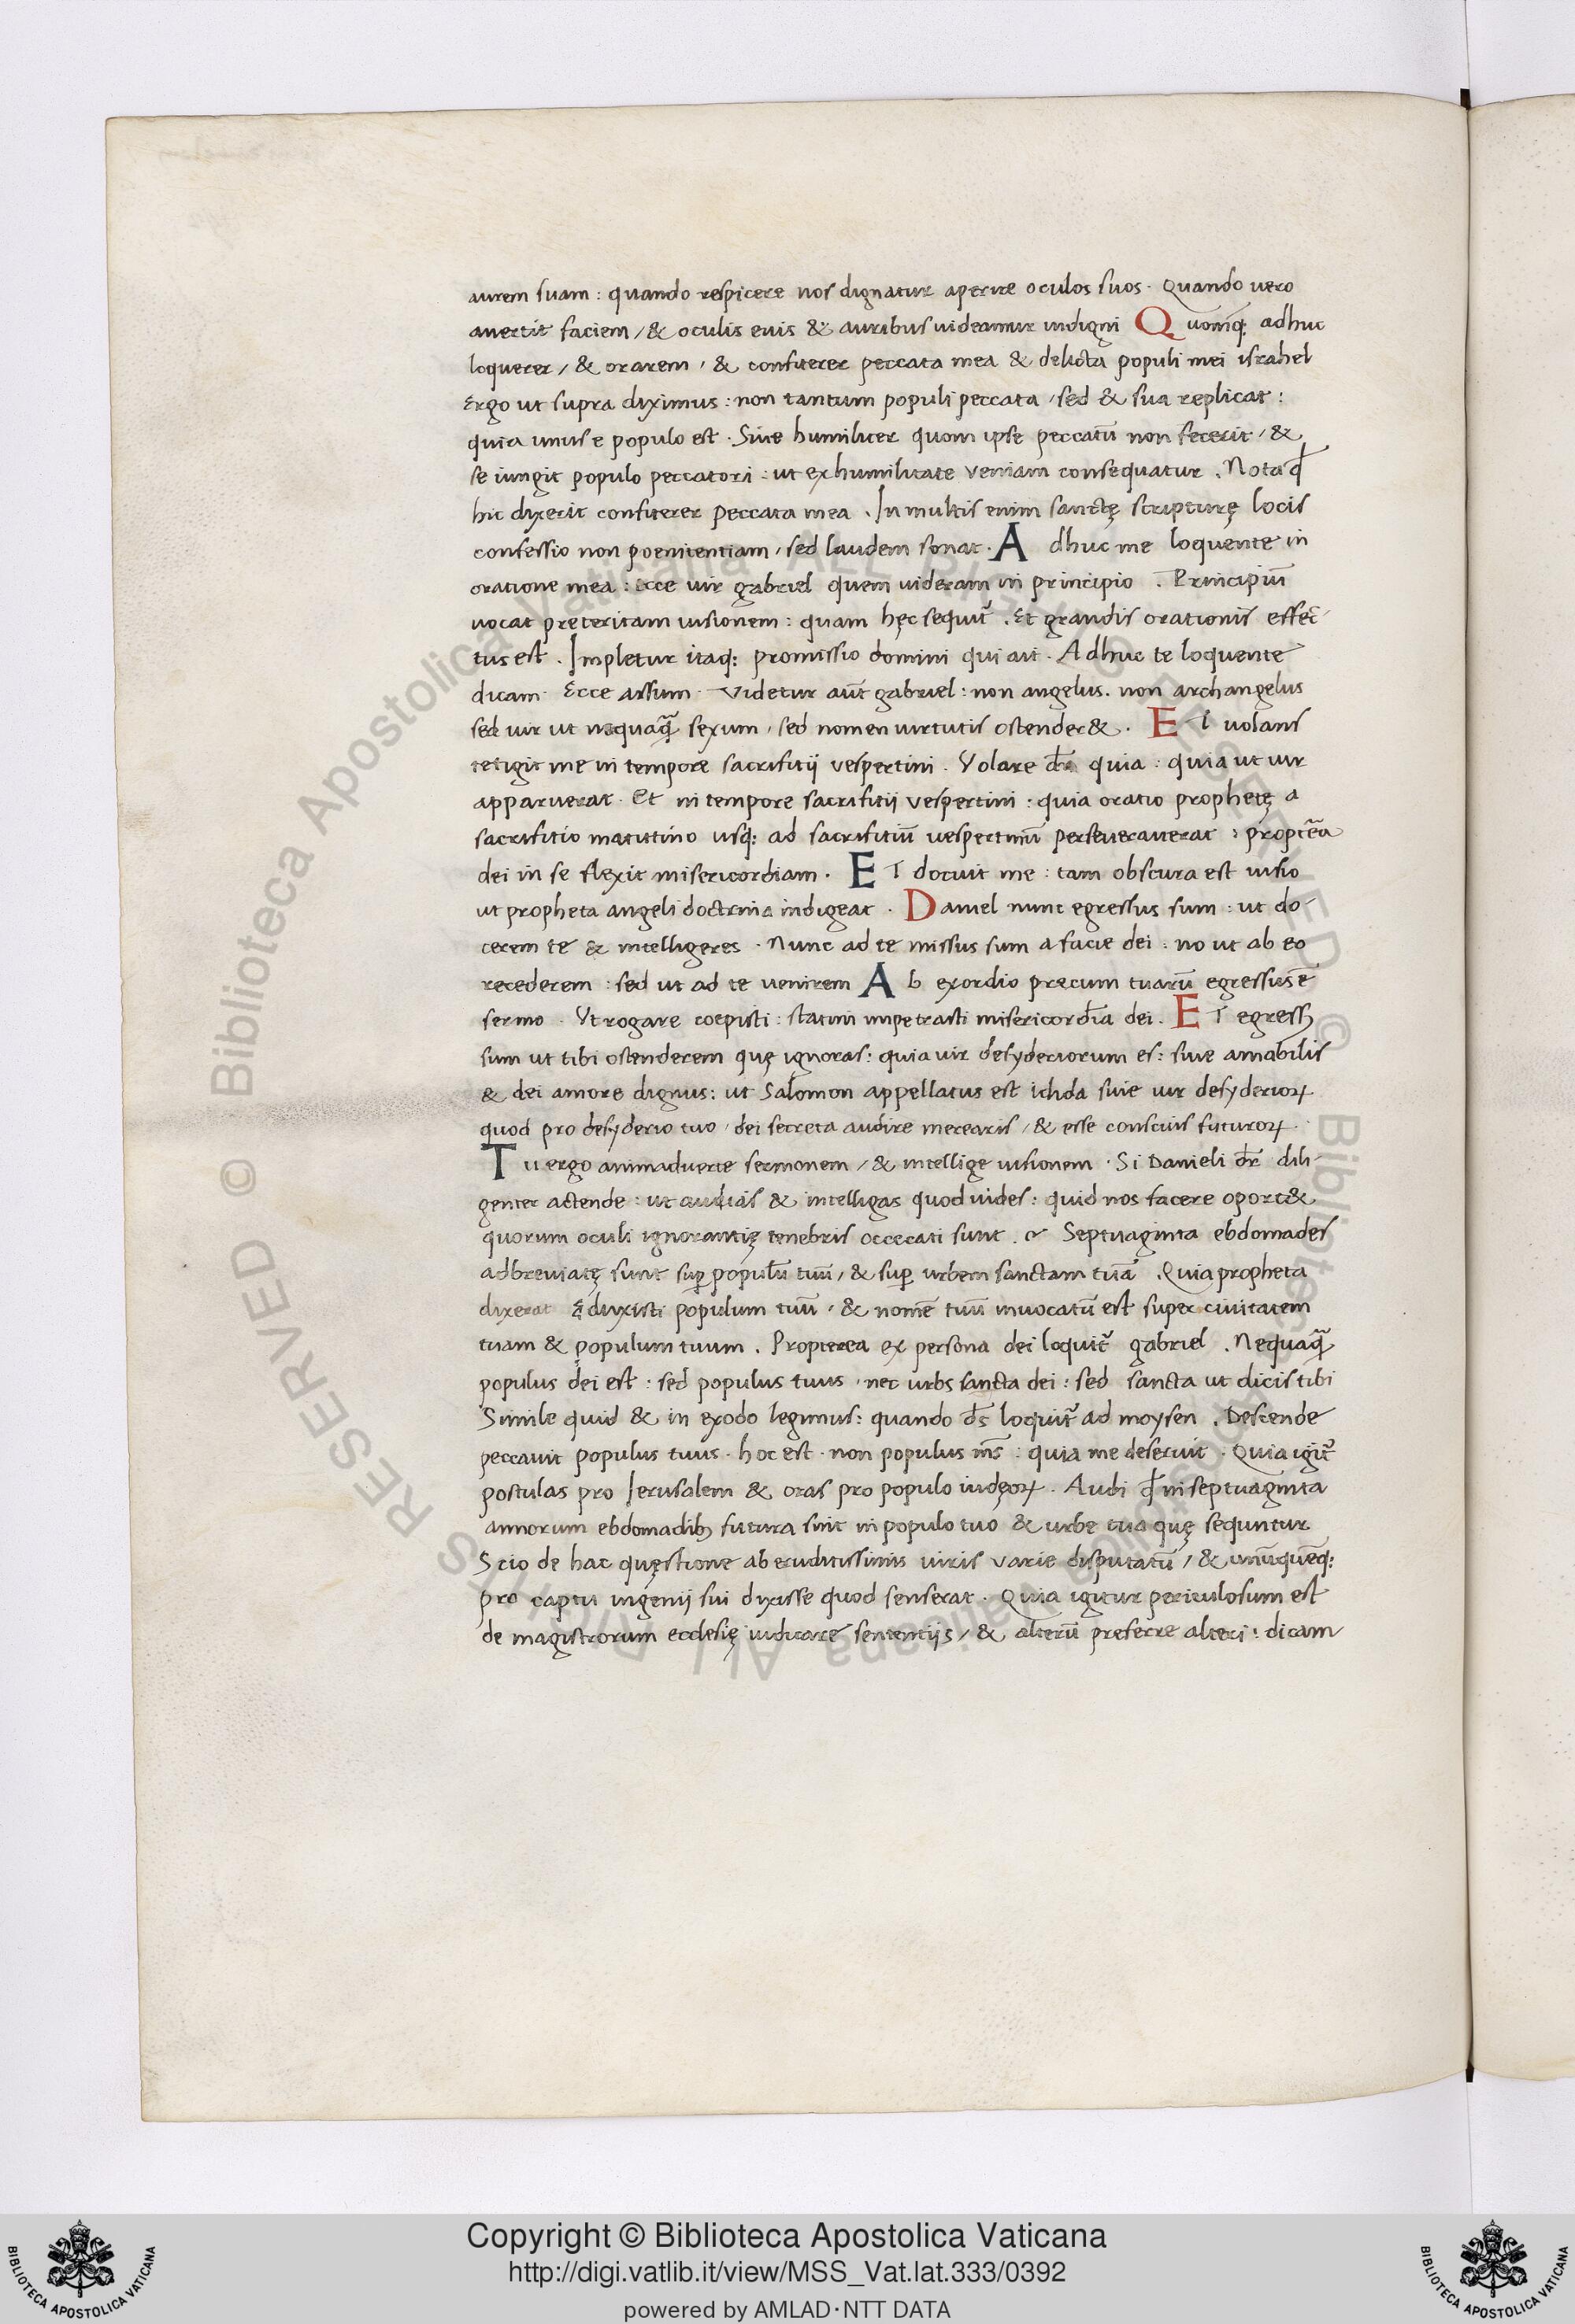 aurem suam : quando respicere nos dignatur aperire oculos suos · Quando uero
auertit faciem / & oculis eius & auribus uideamur indigni Quomq̃: adhuc
loquerer / & orarem / & confiterer peccata mea & delicta populi mei israhel
Ergo ut supra diximus : non tantum populi peccata / sed & sua replicat :
quia unus e populo est · Siue humiliter quom ipse peccatũ non fecerit / &
se iungit populo peccatori : ut ex humilitate veniam consequatur . Nota q̃
hic dixerit confiterer peccata mea . In multis enim sanctę scripturę locis
confessio non poenitentiam / sed laudem sonat . Adhuc me loquente in
oratione mea : ecce uir gabriel quem uideram in principio . Principiũ
uocat preteritam uisionem : quam hęc sequit̃ . Et grandis orationis effec-
tus est . Impletur itaq: promissio domini qui ait . Adhuc te loquente
dicam · Ecce assum · Videtur aũt gabriel : non angelus . non archangelus
sed uir ut nequaq̃ sexum / sed nomen uirtutis ostender& . ET uolans
tetigit me in tempore sacrifitij vespertini . Volare dr̃ quia : quia ut uir
apparuerat . Et in tempore sacrifitij vespertini : quia oratio prophetę a
sacrifitio matutino usq: ad sacrifitiũ uespertinũ perseuerauerat : proptẽa
dei in se flexit misericordiam . ET docuit me : tam obscura est uisio
ut propheta angeli doctrina indigeat . Daniel nunc egressus sum : ut do-
cerem te & intelligeres . Nunc ad te missus sum a facie dei : no ut ab eo
recederem : sed ut ad te venirem Ab exordio precum tuarũ egressus ẽ
sermo . Vt rogare coepisti : statim impetrasti misericordĩa dei . ET egress9
sum ut tibi ostenderem quę ignoras : quia uir desyderiorum es : siue amabilis
& dei amore dignus : ut Salomon appellatus est ichda siue uir desyderioꝝ
quod pro desyderio tuo / dei secreta audire merearis / & esse conscius futuroꝝ .
Tu ergo animaduerte sermonem / & intellige uisionem . Si Danieli dr̃ dili-
genter actende : ut audias & intelligas quod uides : quid nos facere oport&
quorum oculi ignorantię tenebris occecati sunt . Septuaginta ebdomades
adbreuiatę sunt suꝑ populũ tuũ / & suꝑ urbem sanctam tuã . Quia propheta
dixerat Eduxisti populum tuũ / & nomẽ tuũ inuocatũ est super ciuitatem
tuam & populum tuum . Propterea ex persona dei loquit̃ gabriel . Nequaq̃
populus dei est : sed populus tuus . nec urbs sancta dei : sed sancta ut dicis tibi
Simile quid & in exodo legimus : quando ds̃ loquit̃ ad moysen . Descende
peccauit populus tuus . hoc est . non populus ms̃ : quia me deseruit . Quia igit̃
postulas pro Ierusalem & oras pro populo iudęoꝝ . Audi q̃ in septuaginta
annorum ebdomadibꝫ futura sint in populo tuo & urbe tua quę sequntur
Scio de hac quęstione ab eruditissimis uiris varie disputatũ / & unũquẽq:
pro captu ingenij sui dixisse quod senserat . Quia igitur periculosum est
de magistrorum ecclesię iudicare sententijs / & alterũ preferre alteri : dicam
Copyright © Biblioteca Apostolica Vaticana
http://digi.vatlib.it/view/MSS_Vat.lat.333/0392
powered by AMLAD·NTT DATA
BIBLIOTECA APOSTOLICA VATICANA
BIBLIOTECA APOSTOLICA VATICANA